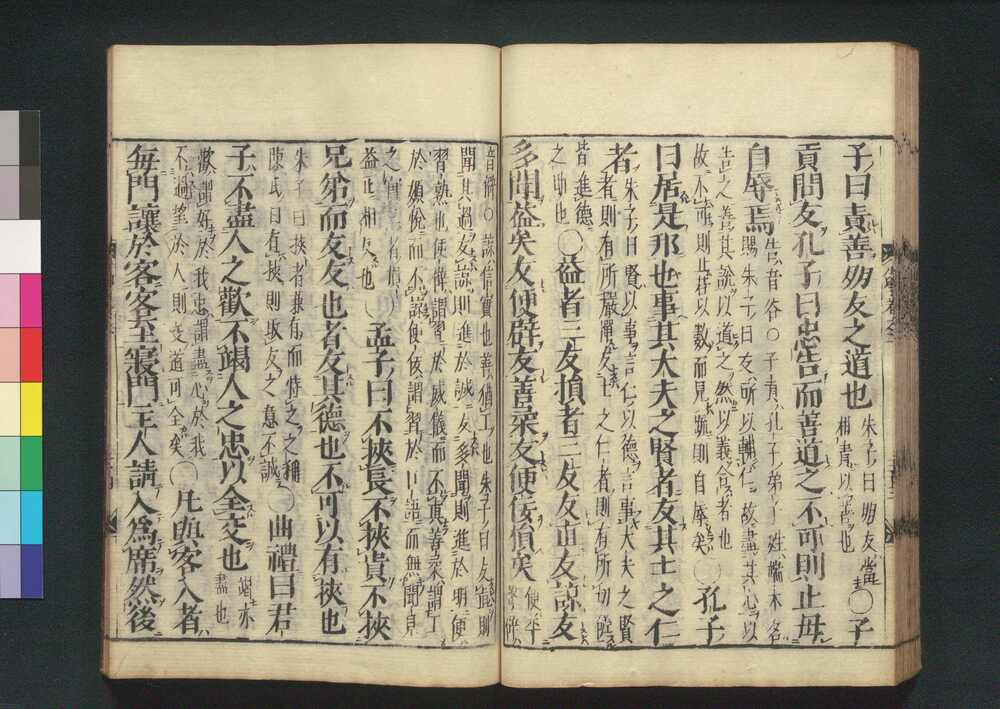 子曰責善朋友之道也
朱子曰朋友當
相責以善也
〇子
貢問友孔子曰忠告而善道之不可則止毋
自辱焉
告音谷〇子貢孔子弟子姓端木名
賜朱子曰友所以輔仁故盡其心以
告之善其說以道之然以義合者也
故不可則止若以數而見疏則自辱矣
〇孔子
曰居是邦也事其大夫之賢者友其士之仁
者
朱子曰賢以事言仁以德言事大夫之賢
者則有所嚴憚友士之仁者則有所切磋
皆進德
之助也
〇益者三友損者三友友直友諒友
多聞益矣友便辟友善柔友便佞損矣
便平
聲辟
音僻〇諒信實也善猶工也朱子曰友直則
聞其過友諒則進於誠友多聞則進於明便
習熟也便辟謂習於威儀而不直善柔謂工
於媚悅而不諒便佞謂習於口語而無聞見
之實三者損
益正相反也
〇孟子曰不挾長不挾貴不挾
兄弟而友友也者友其德也不可以有挾也
朱子曰挾者兼有而恃之之稱
陳氏曰有挾則取友之意不誠
〇曲禮曰君
子不盡人之歡不竭人之忠以全交也
竭亦
盡也
歡謂好於我忠謂盡心於我
不過望於人則交道可全矣
〇凡與客入者
每門讓於客客至寢門主人請入爲席然後